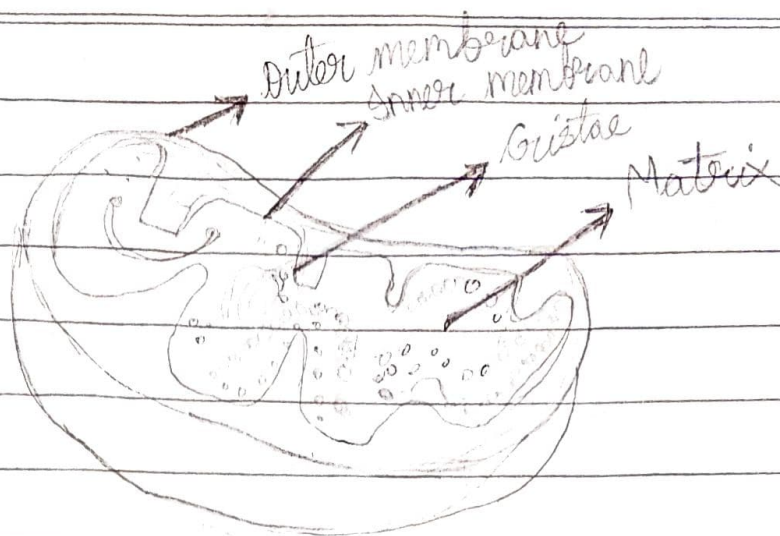 Outer membrane
Inner membrane
Cristae
Matrix